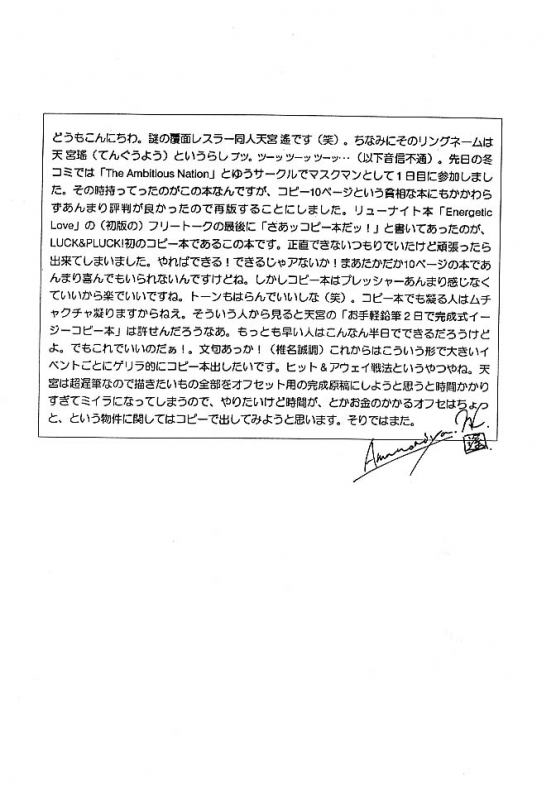 どうもこんにちわ。謎の覆面レスラー同人天宮遙です（笑）。ちなみにそのリングネームは
天宮瑤（てんぐうよう）というらしプツ。ツーッツーッツーッ…（以下音信不通）。先日の冬
コミでは「The Ambitious Nation」とゆうサークルでマスクマンとして１日目に参加しまし
た。その時持ってったのがこの本なんですが、コピー10ページという貧相な本にもかかわら
ずあんまり評判が良かったので再版することにしました。リューナイト本「Energetic
Love」の（初版の）フリートークの最後に「さあッコピー本だッ！」と書いてあったのが、
LUCK&PLUCK!初のコピー本であるこの本です。正直できないつもりでいたけど頑張ったら
出来てしまいました。やればできる！できるじゃアないか！まあたかだか10ページの本であ
んまり喜んでもいられないんですけどね。しかしコピー本はプレッシャーあんまり感じなく
ていいから楽でいいですね。トーンもはらんでいいしな（笑）。コピー本でも凝る人はムチ
ャクチャ凝りますからねえ。そういう人から見ると天宮の「お手軽鉛筆２日で完成式イー
ジーコピー本」は許せんだろうなあ。もっとも早い人はこんなん半日でできるだろうけど
よ。でもこれでいいのだぁ！。文句あっか！（椎名誠調）これからはこういう形で大きいイ
ベントごとにゲリラ的にコピー本出したいです。ヒット＆アウェイ戦法というやつやね。天
宮は超遅筆なので描きたいもの全部をオフセット用の完成原稿にしようと思うと時間かかり
すぎてミイラになってしまうので、やりたいけど時間が、とかお金のかかるオフセはちょっ
と、という物件に関してはコピーで出してみようと思います。そりではまた。